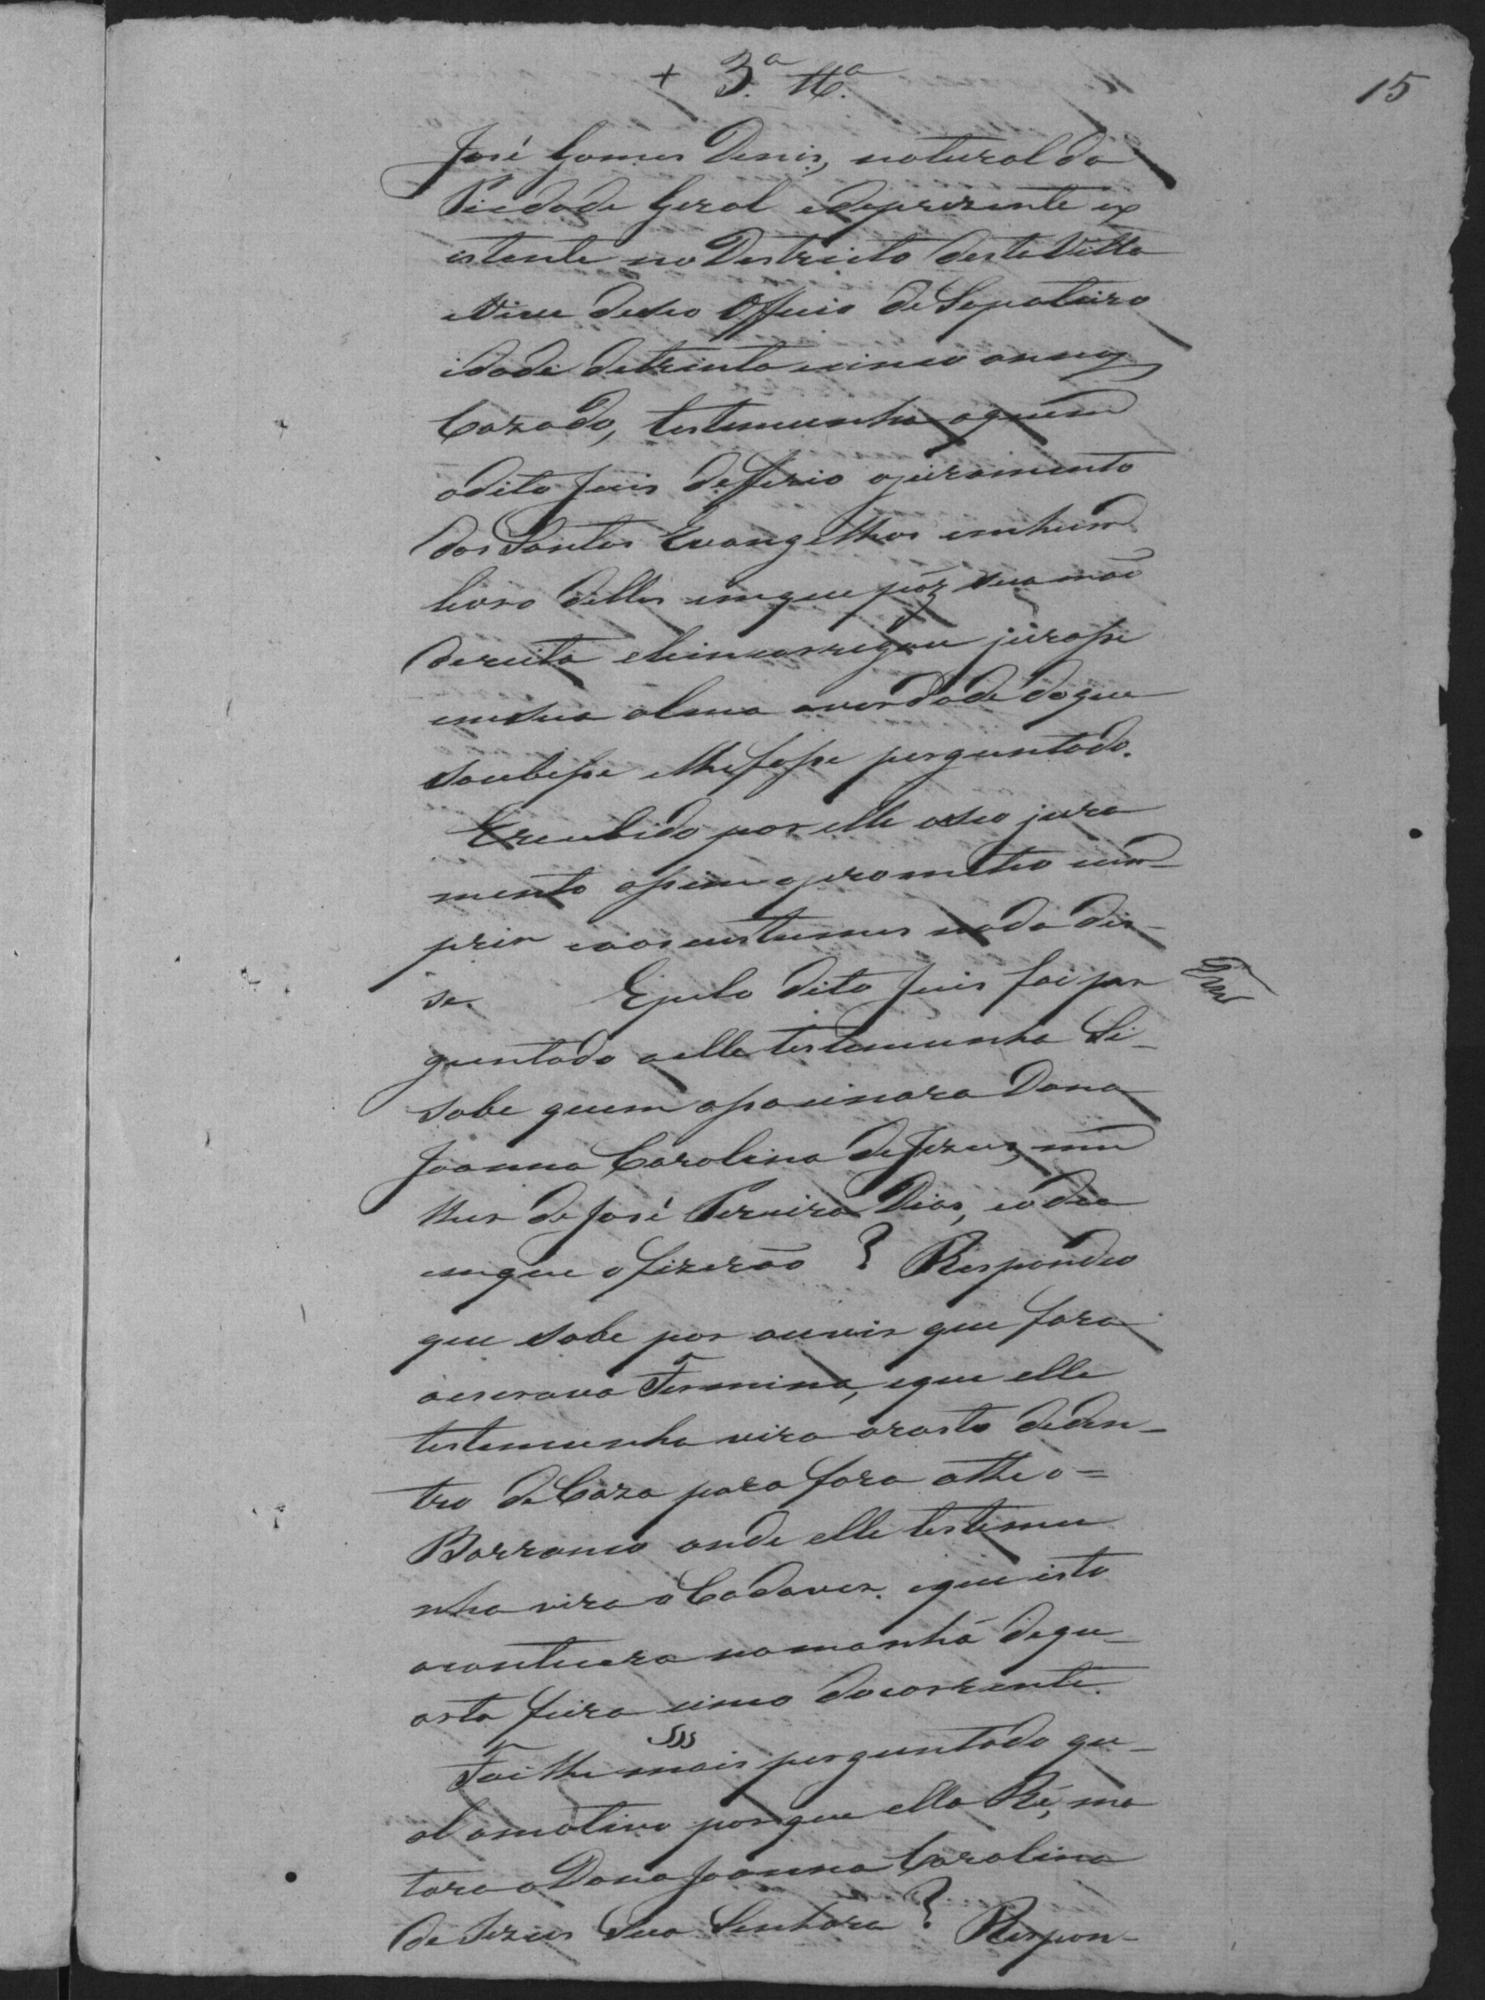 15
+ 3.ª tt.ª
José Gomes Denis, natural da
Piedade Geral e de prezente ex
estente no Destricto desta Villa
e Vive de seo Officio de Sapateiro
idade de trinta e cinco annos
Cazado, testemunha a quem
o dito Juis defferio o juramento
dos Santos Evangelhos em hum
livro delles em que pôz sua mão
dereita e lhe incarregou jurasse
em sua alma a verdade do que
soubesse e lhe fosse perguntado.
E recebido por elle o seo jura
mento assim o prometteo cum-
prir e aos custumes nada dis-
se. E pelo dito Juis foi per
guntado a elle testemunha Si-
sabe quem assacinara Dona
Joanna Carolina de Jezus, mu
lher de José Pereira Dias, e o dia
em que o fizerão? Respondeo
que sabe por ouvir que fora
a escrava Fermina, e que elle
testemunha vira o rasto de den-
tro de Caza para fora athe o=
Barranco onde elle testemu
nha vira o Cadaver. e que isto
acontecera na manhã de qu-
arta feira cinco do corrente.
Foi lhe mais perguntado qu-
al o motivo porque ella Ré, ma
tara a Dona Joanna Carolina
de Jezus Sua Senhora? Respon-